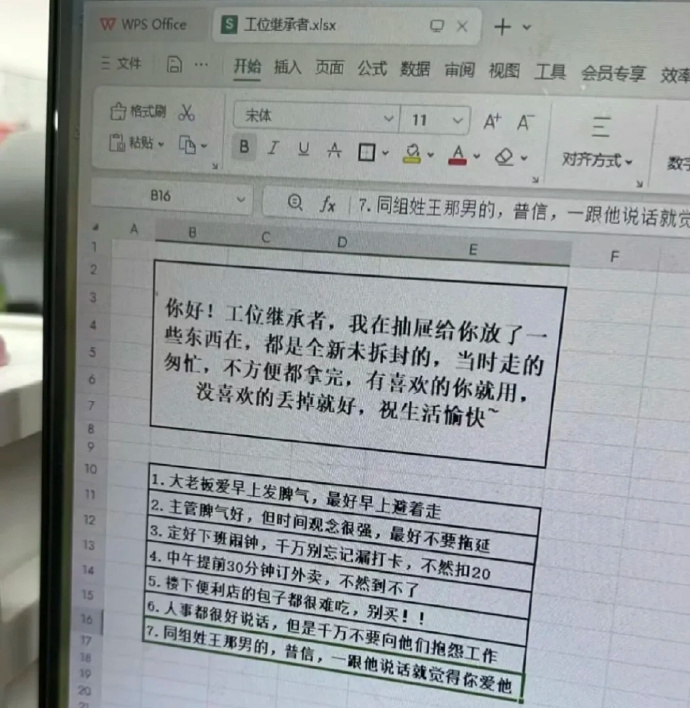 WPS Office
工位继承者.xlsx
文件
开始 插入 页面 公式 数据 审阅 视图 工具 会员专享 效率
格式刷
宋体 11 A+ A-
粘贴
B I U A A
对齐方式
数字
B16
fx 7.同组姓王那男的，普信，一跟他说话就觉
A B C D E F
1
2
3
4
5
6
7
8
9
10
11
12
13
14
15
16
17
18
19
20
你好！工位继承者，我在抽屉给你放了一
些东西在，都是全新未拆封的，当时走的
匆忙，不方便都拿完，有喜欢的你就用，
没喜欢的丢掉就好，祝生活愉快~
1.大老板爱早上发脾气，最好早上避着走
2.主管脾气好，但时间观念很强，最好不要拖延
3.定好下班闹钟，千万别忘记漏打卡，不然扣20
4.中午提前30分钟订外卖，不然到不了
5.楼下便利店的包子都很难吃，别买！！
6.人事都很好说话，但是千万不要向他们抱怨工作
7.同组姓王那男的，普信，一跟他说话就觉得你爱他